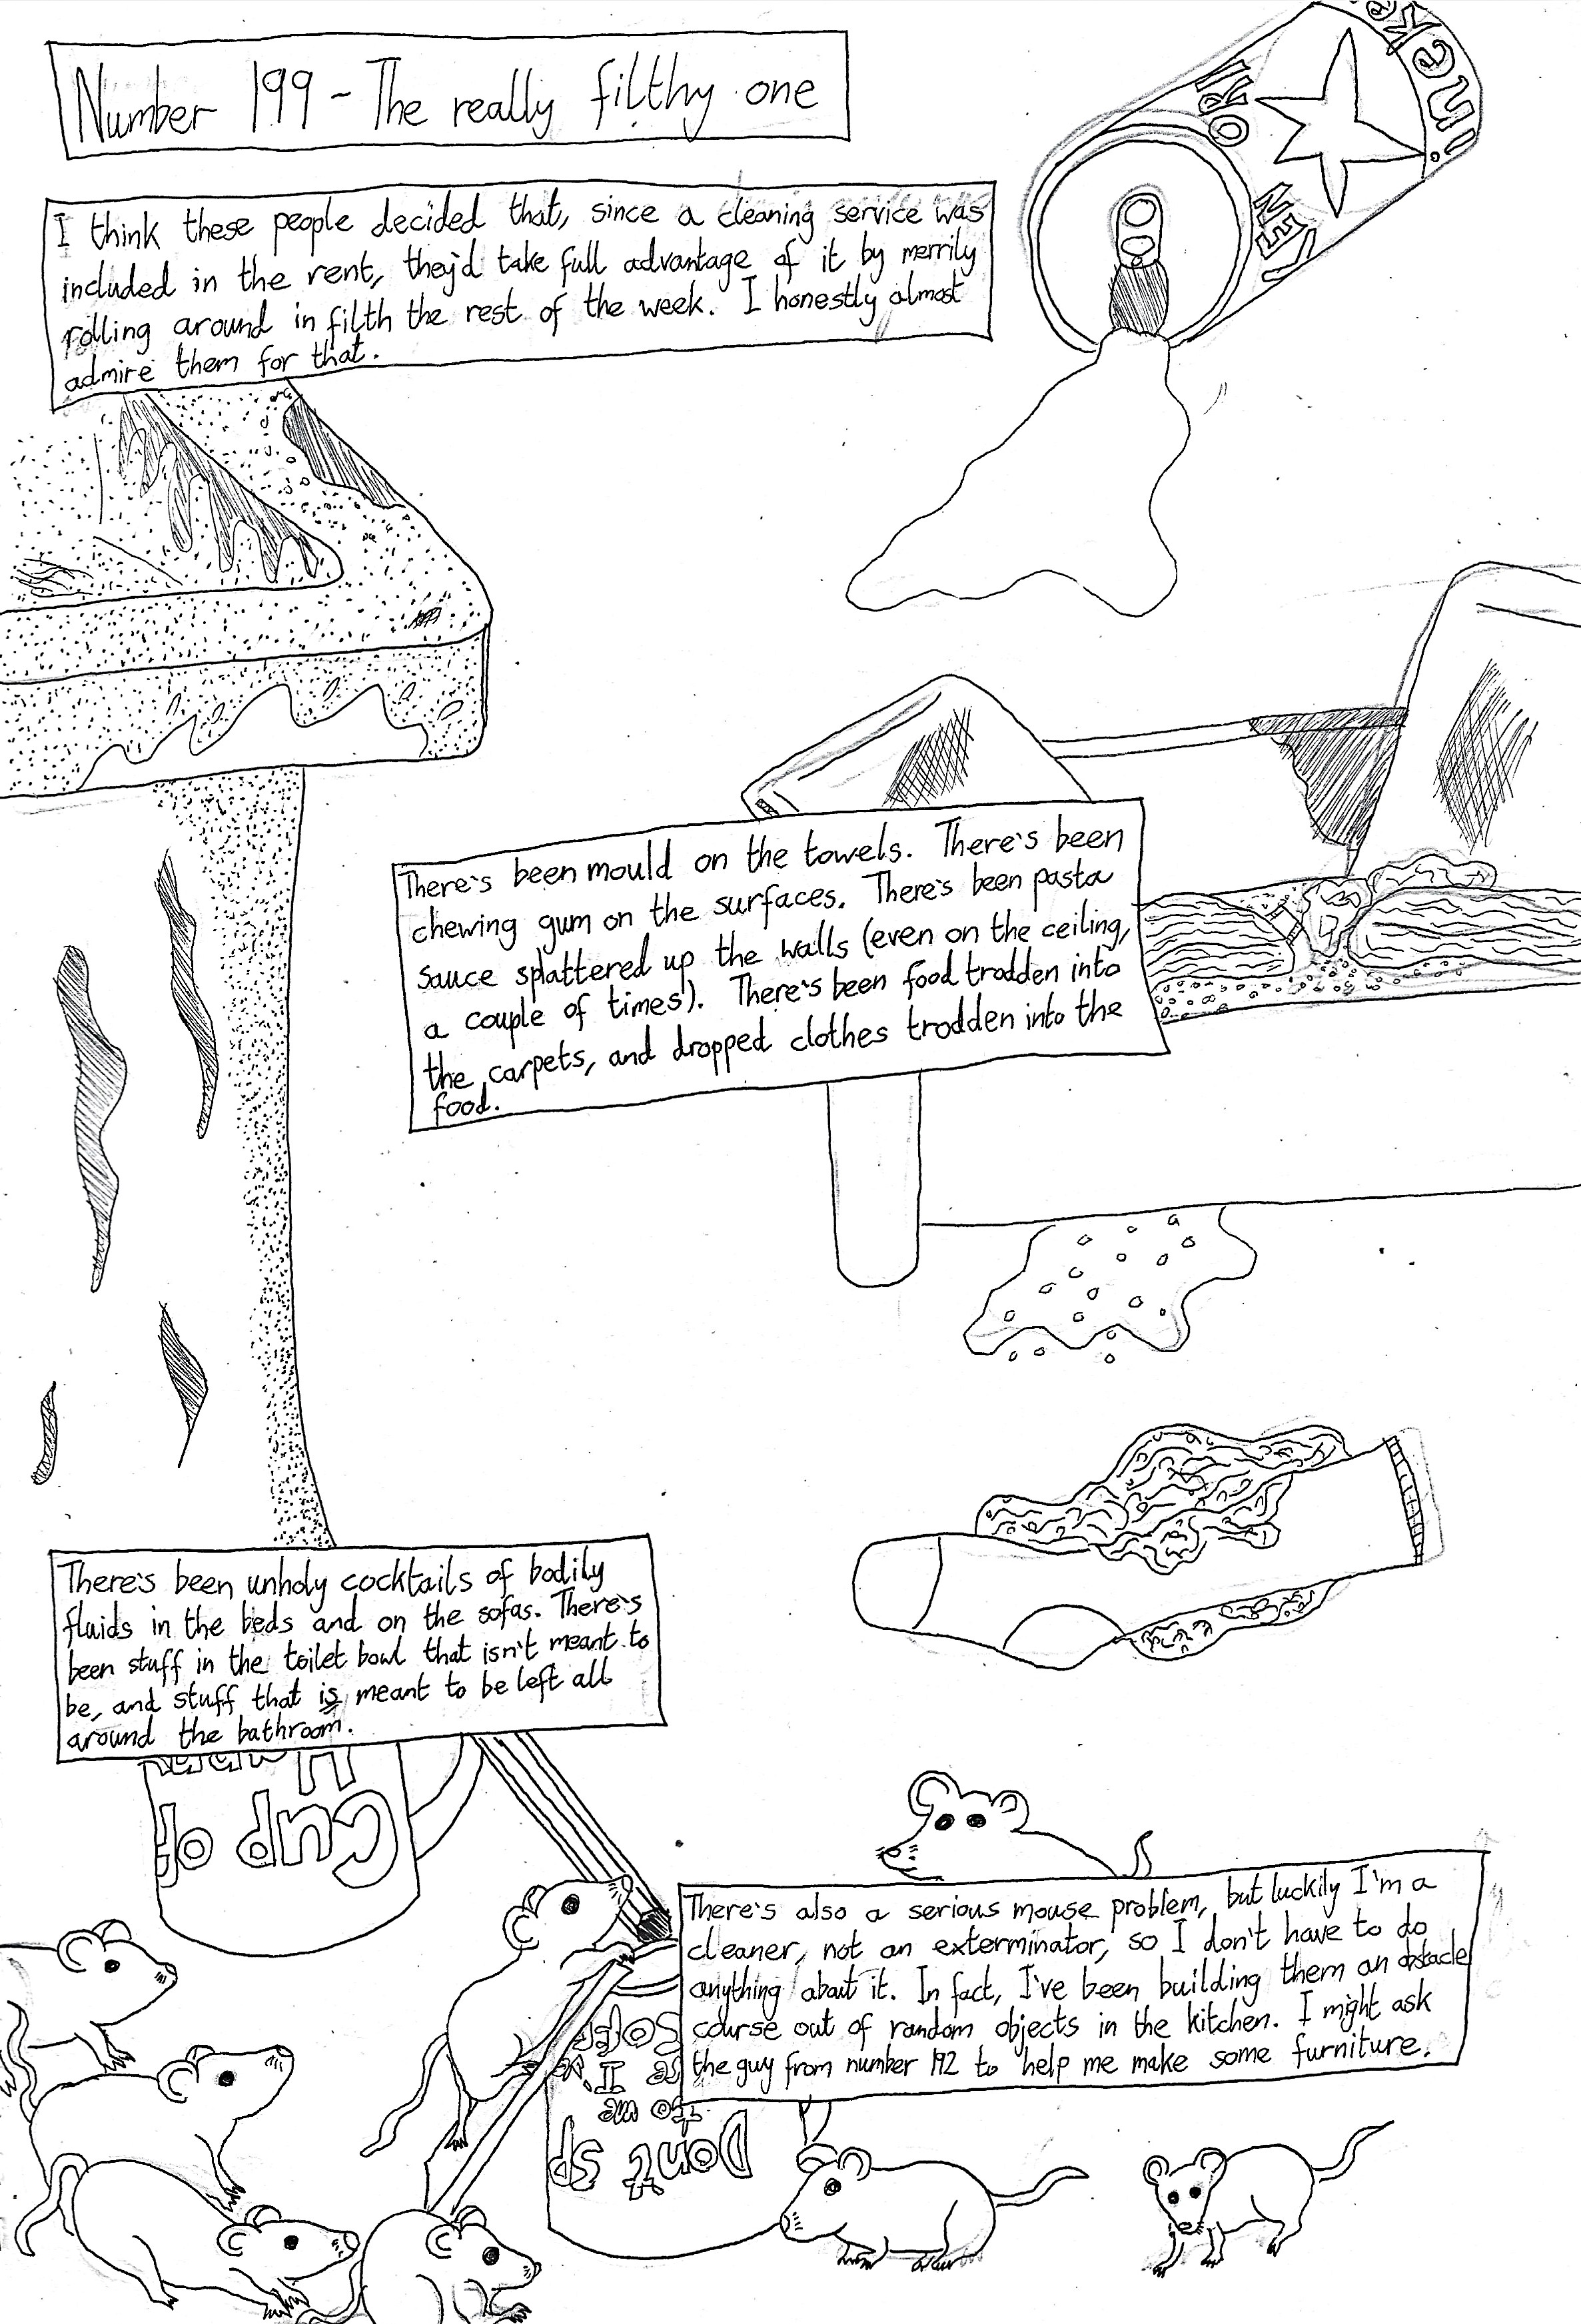 Number 199 - The really filthy one
I think these people decided that, since a cleaning service was
included in the rent, they'd take full advantage of it by merrily
rolling around in filth the rest of the week. I honestly almost
admire them for that.
There's been mould on the towels. There's been
chewing gum on the surfaces. There's been pasta
sauce splattered up the walls (even on the ceiling,
a couple of times). There's been food trodden into
the carpets, and dropped clothes trodden into the
food.
There's been unholy cocktails of bodily
fluids in the beds and on the sofas. There's
been stuff in the toilet bowl that isn't meant to
be, and stuff that is meant to be left all
around the bathroom.
Cup of
There's also a serious mouse problem, but luckily I'm a
cleaner, not an exterminator, so I don't have to do
anything about it. In fact, I've been building them an obstacle
course out of random objects in the kitchen. I might ask
the guy from number 192 to help me make some furniture.
Dont sp
to me